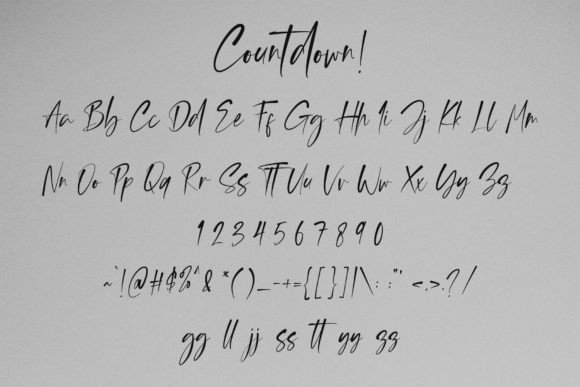 Countdown!
Aa Bb Cc Dd Ee Ff Gg Hh Ii Jj Kk Ll Mm
Nn Oo Pp Qq Rr Ss Tt Uu Vv Ww Xx Yy Zz
1 2 3 4 5 6 7 8 9 0
~`!@#$%^& *()_-+={[}]|\: ;"' <,>.? /
gg ll jj ss tt yy zz